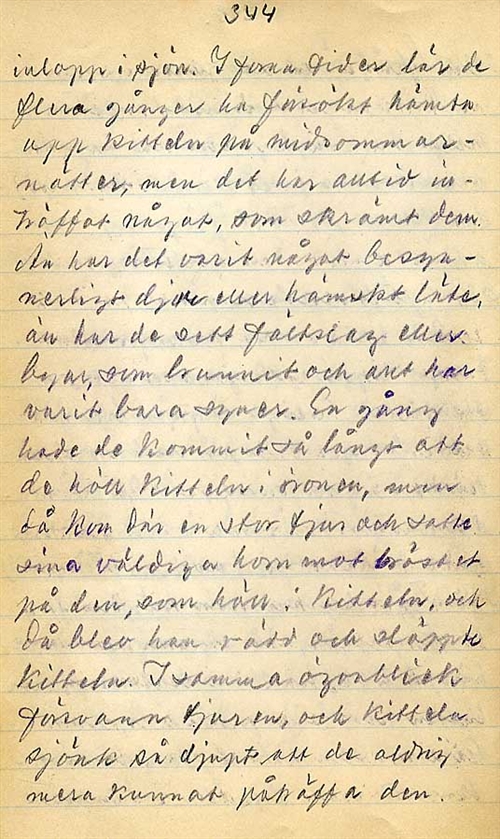 344
inlopp i sjön. I forna tider lär de
flera gånger ha försökt hämta
upp kitteln på midsommar-
nätter, men det har alltid in-
träffat något, som skrämt dem.
Än har det varit något besyn-
nerligt djur eller hämskt läte,
än har de sett fältslag eller
byar, som brunnit och allt har
varit bara syner. En gång
hade de kommit så långt att
de höll kitteln i öronen, men
då kom där en stor tjur och satte
sina väldiga horn mot bröstet
på den, som höll i kitteln, och
då blev han rädd och släppte
kitteln. I samma ögonblick
försvann tjuren, och kitteln
sjönk så djupt att de aldrig
mera kunnat påträffa den.